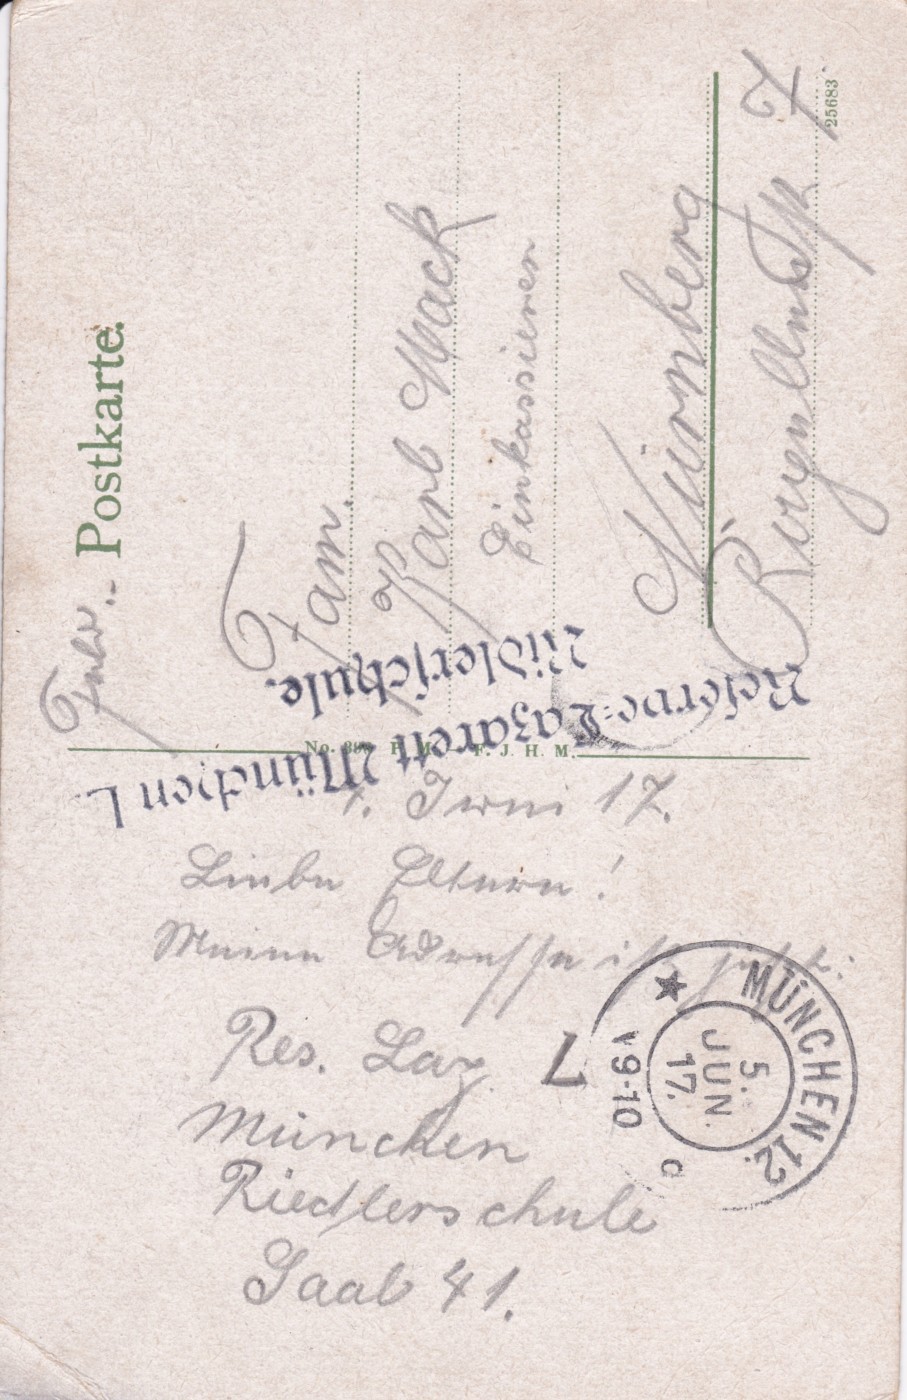 Postkarte.
Fam.
Karl Mack
Einkassierer
Nürnberg
7
25683
No. F. J. H. M.
Reserve-Lazarett München I.
Ridlerschule.
4. Juni 17.
Liebe Eltern!
Meine Adresse ist jetzt:
Res. Laz.
München
Riedlerschule
Saal 41.
7
MÜNCHEN 12.
5.
JUN.
17.
V9-10
c